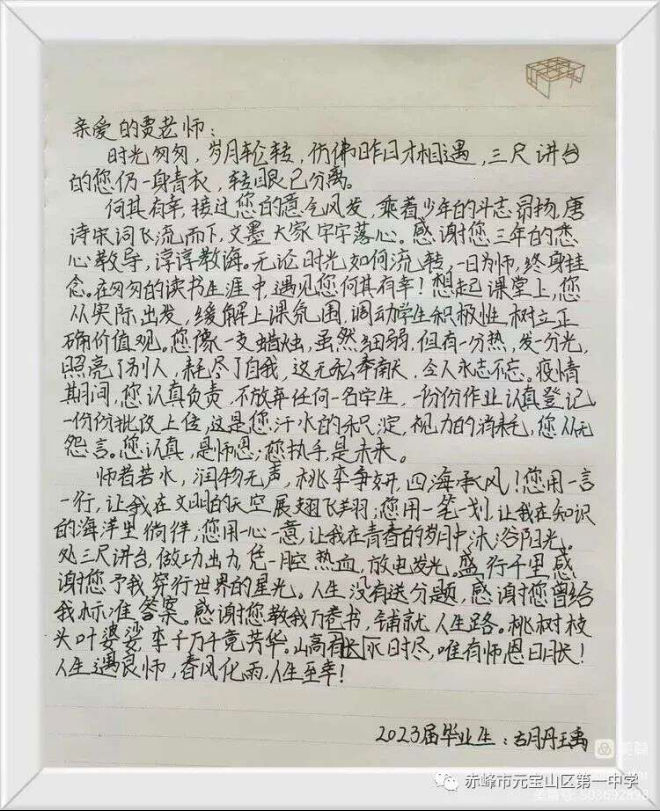 亲爱的贾老师：
时光匆匆，岁月轮转，仿佛昨日才相遇，三尺讲台
的您仍一身青衣，转眼已分离。
何其有幸，接过您的意气风发，乘着少年的斗志昂扬，唐
诗宋词飞流而下，文墨大家字字落心。感谢您三年的悉
心教导，谆谆教诲。无论时光如何流转，一日为师，终身挂
念。在匆匆的读书生涯中，遇见您何其有幸！想起课堂上，您
从实际出发，缓解上课氛围，调动学生积极性，树立正
确价值观。您像一支蜡烛，虽然细弱，但有一分热，发一分光，
照亮了别人，耗尽了自我，这无私奉献，令人永志不忘。疫情
期间，您认真负责，不放弃任何一名学生，一份份作业认真登记，
一份份批改上传，这是您汗水的积淀，视力的消耗，您从无
怨言。您认真，是师恩；您执手，是未来。
师者若水，润物无声，桃李争妍，四海承风！您用一言
一行，让我在文山的天空展翅飞翔；您用一笔一划，让我在知识
的海洋里徜徉；您用一心一意，让我在青春的岁月中沐浴阳光。
处三尺讲台，做功出力，凭一腔热血，放电发光。盛行千里，感
谢您予我穷行世界的星光。人生没有送分题，感谢您曾给
我标准答案。感谢您教我万卷书，铺就人生路。桃树枝
头叶婆娑，李子万千竞芳华。山高有长水时尽，唯有师恩日月长！
人生遇良师，春风化雨，人生至幸！
2023届毕业生：胡丹
赤峰市元宝山区第一中学
503692898